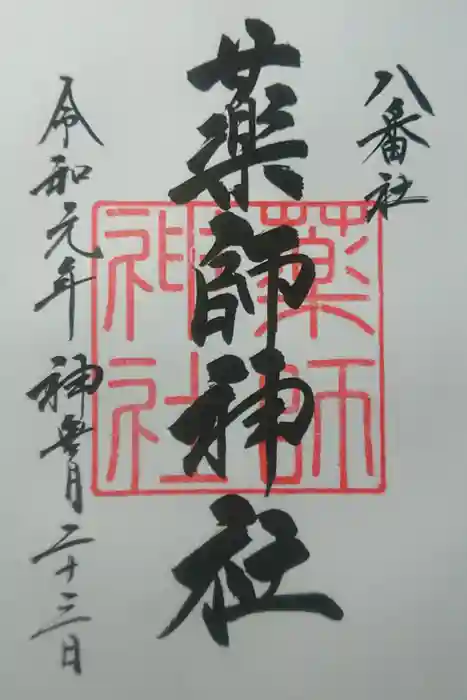 八番社
薬師神社
薬師
神社
令和元年 神無月二十三日